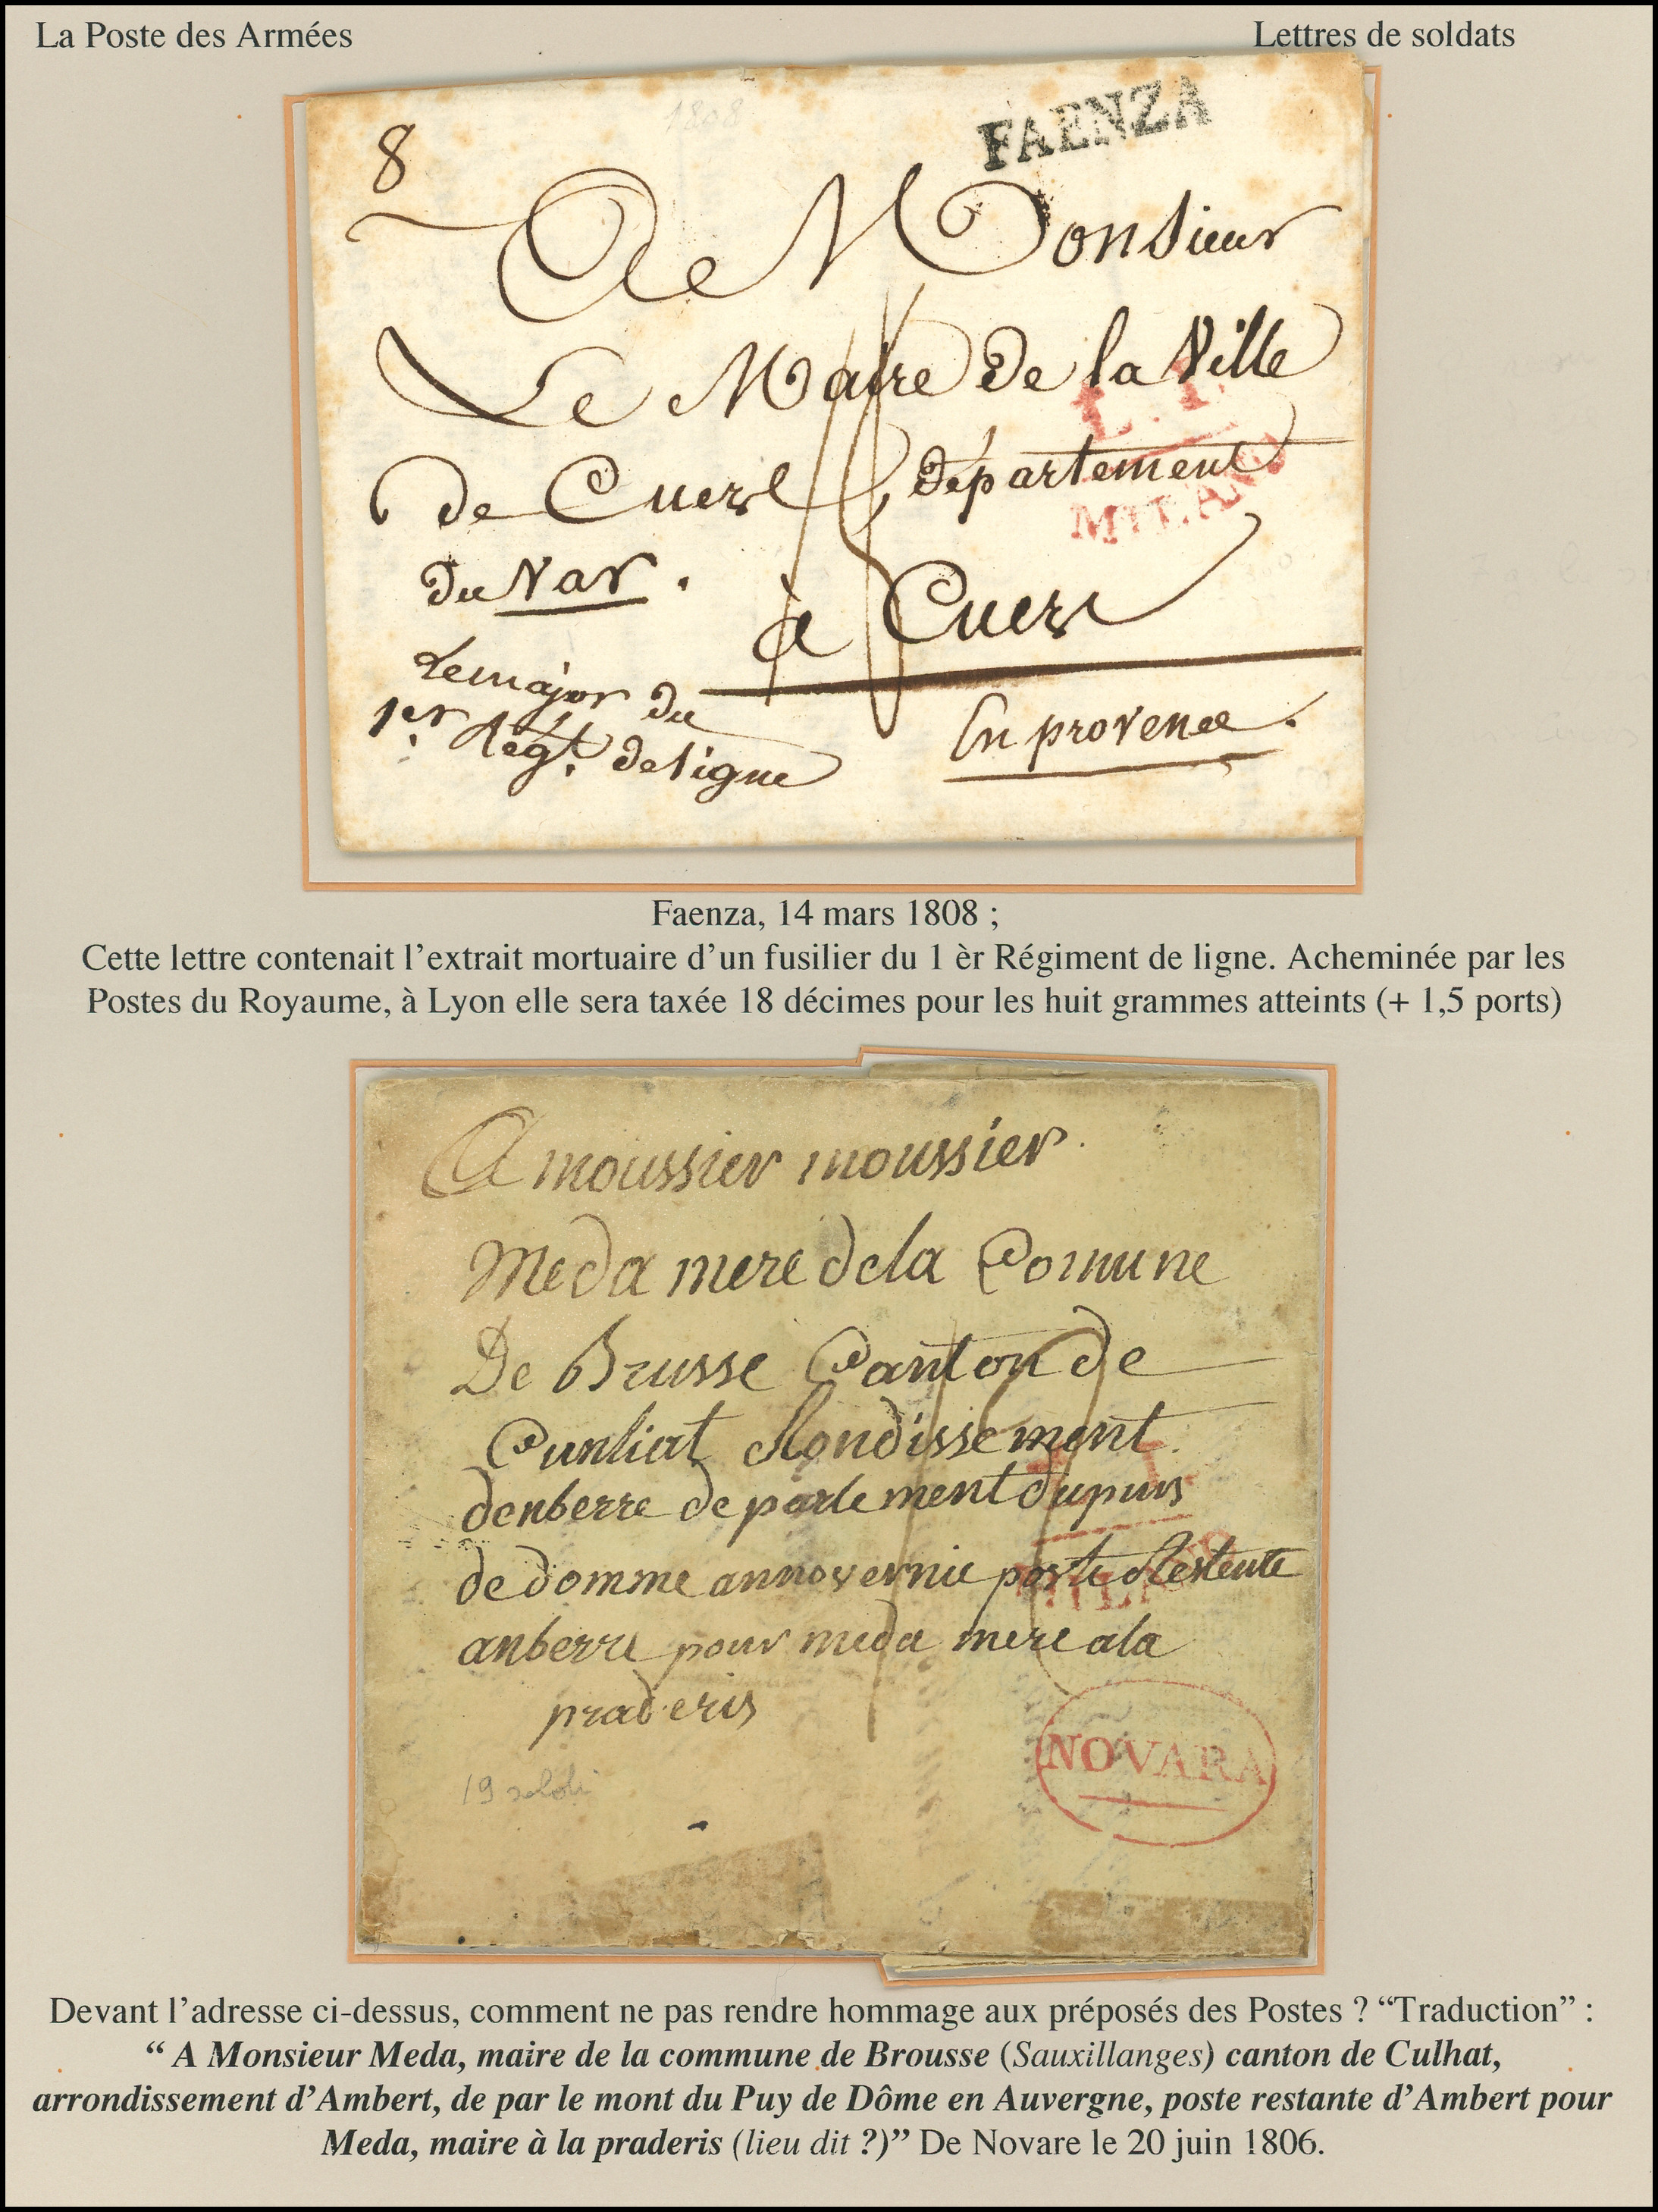 La Poste des Armées
Lettres de soldats
1808
FAENZA
8
A Monsieur
Le Maire de la Ville
L. I.
de Cuers, département
MILANO
du Var.
à Cuers
Le major du
1er. Régt. de ligne
En provence.
18
Faenza, 14 mars 1808 ;
Cette lettre contenait l’extrait mortuaire d’un fusilier du 1 èr Régiment de ligne. Acheminée par les
Postes du Royaume, à Lyon elle sera taxée 18 décimes pour les huit grammes atteints (+ 1,5 ports)
A moussier moussier
Meda mere dela Comune
De Brusse Canton de
Cunliat Rondissement
denberre de parle ment dupuis
de domme annovernie poste Restente
anberre pour meda mere ala
praderis
MILANO
NOVARA
19 soldi
Devant l’adresse ci-dessus, comment ne pas rendre hommage aux préposés des Postes ? “Traduction” :
“ A Monsieur Meda, maire de la commune de Brousse (Sauxillanges) canton de Culhat,
arrondissement d’Ambert, de par le mont du Puy de Dôme en Auvergne, poste restante d’Ambert pour
Meda, maire à la praderis (lieu dit ?)” De Novare le 20 juin 1806.